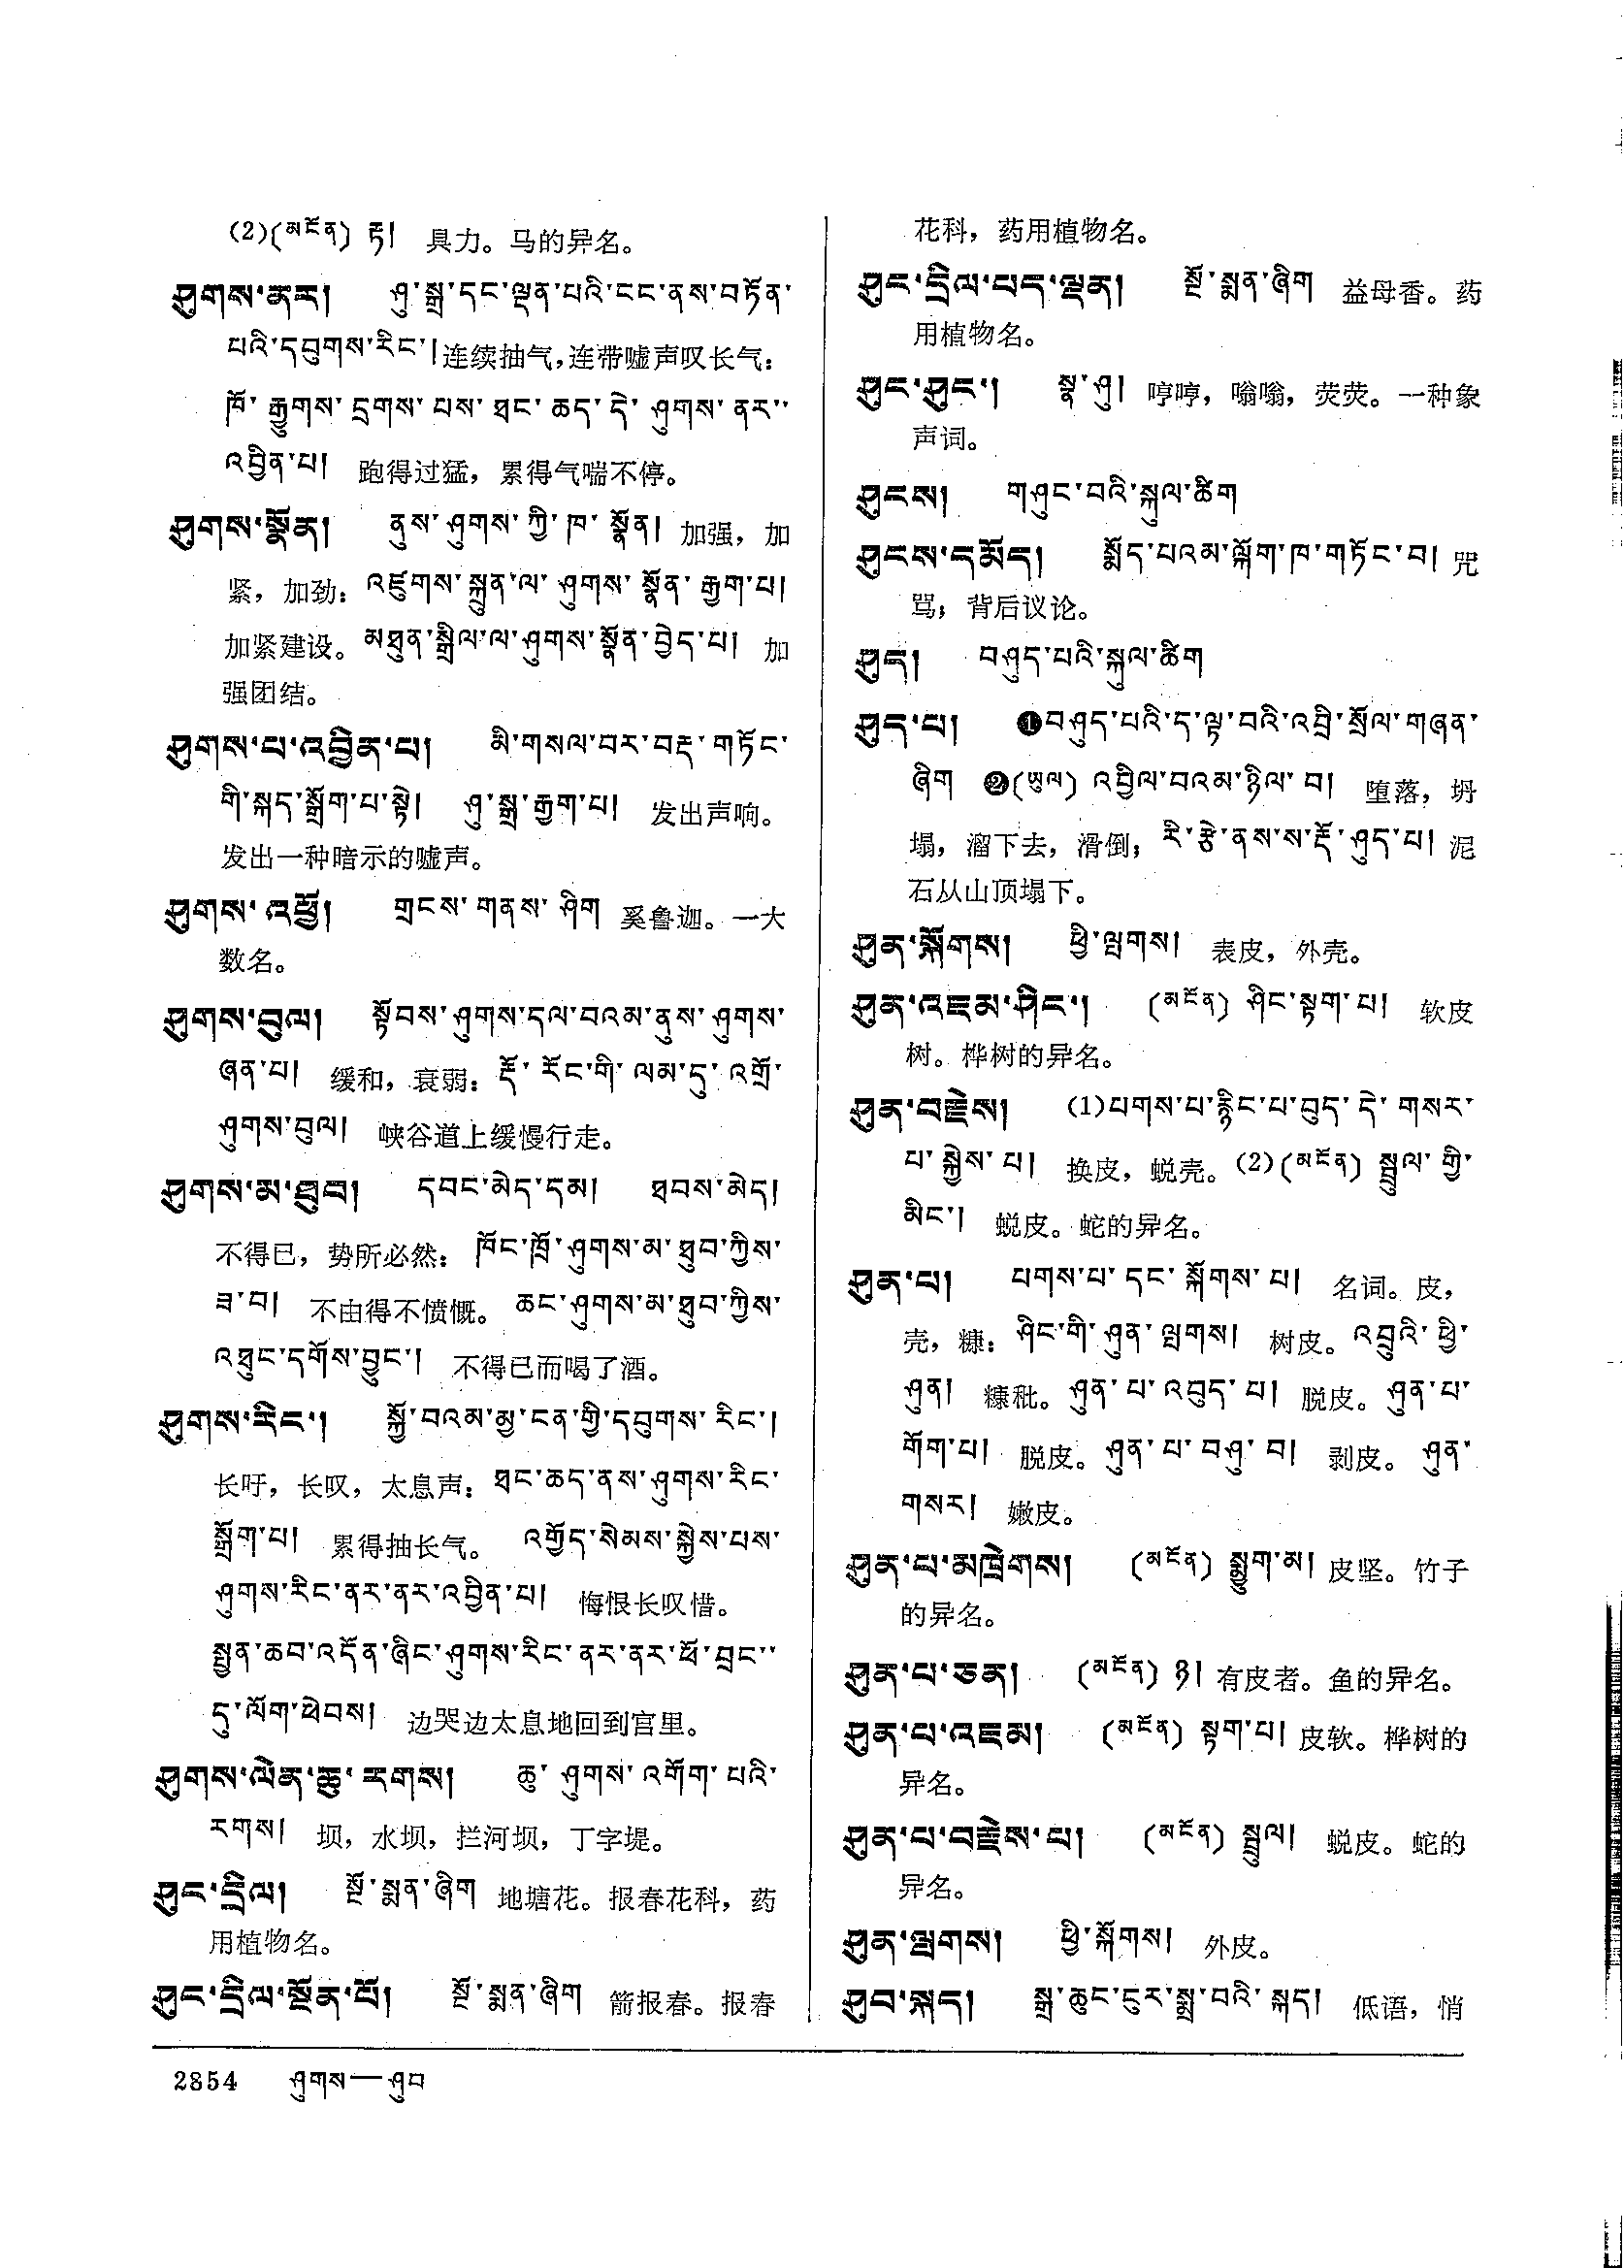 (2)(མངོན) རྟ། 具力。马的异名。
ཤུགས་ནར། ཤུ་སྒྲ་དང་ལྡན་པའི་ངང་ནས་བཏོན་
པའི་དབུགས་རིང་།连续抽气,连带嘘声叹长气:
ཁོ་ རྒྱུགས་ དྲགས་ པས་ ཐང་ ཆད་ དེ་ ཤུགས་ ནར་་
འབྱིན་པ། 跑得过猛，累得气喘不停。
ཤུགས་སྣོན། ནུས་ ཤུགས་ ཀྱི་ ཁ་ སྣོན། 加强，加
紧，加劲：འཛུགས་སྐྲུན་ལ་ ཤུགས་ སྣོན་ རྒྱག་པ།
加紧建设。མཐུན་སྒྲིལ་ལ་ཤུགས་སྣོན་བྱེད་པ། 加
强团结。
ཤུགས་པ་འབྱིན་པ། མི་གསལ་བར་བརྡ་གཏོང་
གི་སྐད་སྒྲོག་པ་སྟེ། ཤུ་སྒྲ་རྒྱག་པ། 发出声响。
发出一种暗示的嘘声。
ཤུགས་འཕྱོ། གྲངས་ གནས་ ཤིག 奚鲁迦。一大
数名。
ཤུགས་བུལ། སྟོབས་ཤུགས་དལ་བའམ་ནུས་ཤུགས་
ཞན་པ། 缓和，衰弱：རྡོ་ རོང་གི་ ལམ་དུ་ འགྲོ་
ཤུགས་བུལ། 峡谷道上缓慢行走。
ཤུགས་མ་ཐུབ། དབང་མེད་དམ། ཐབས་མེད།
不得已，势所必然：ཁོང་ཁྲོ་ཤུགས་མ་ཐུབ་ཀྱིས་
ཟ་བ། 不由得不愤慨。ཆང་ཤུགས་མ་ཐུབ་ཀྱིས་
འཐུང་དགོས་བྱུང་། 不得已而喝了酒。
ཤུགས་རིང་། སྐྱོ་བའམ་མྱ་ངན་གྱི་དབུགས་རིང་།
长吁，长叹，太息声：ཐང་ཆད་ནས་ཤུགས་རིང་
སྒྲོག་པ། 累得抽长气。 འགྱོད་སེམས་སྐྱེས་པས་
ཤུགས་རིང་ནར་ནར་འབྱིན་པ། 悔恨长叹惜。
སྤྱན་ཆབ་འདོན་ཞིང་ཤུགས་རིང་ནར་ནར་ཕོ་བྲང་་
དུ་ལོག་ཕེབས། 边哭边太息地回到宫里。
ཤུགས་ལེན་ཆུ་ རགས། ཆུ་ ཤུགས་ འགོག་ པའི་
རགས། 坝，水坝，拦河坝，丁字堤。
ཤུང་དྲིལ། སྔོ་སྨན་ཞིག 地塘花。报春花科，药
用植物名。
ཤུང་དྲིལ་སྔོན་པོ། སྔོ་སྨན་ཞིག 箭报春。报春
花科，药用植物名。
ཤུང་དྲིལ་པད་ལྡན། སྔོ་སྨན་ཞིག 益母香。药
用植物名。
ཤུང་ཤུང་། སྣ་ཤུ། 哼哼，嗡嗡，荧荧。一种象
声词。
ཤུངས། གཤུང་བའི་སྐུལ་ཚིག
ཤུངས་དམོད། སྨོད་པའམ་ལྐོག་ཁ་གཏོང་བ། 咒
骂；背后议论。
ཤུད། བཤུད་པའི་སྐུལ་ཚིག
ཤུད་པ། ❶བཤུད་པའི་ད་ལྟ་བའི་འབྲི་སྲོལ་གཞན་
ཞིག ❷(ཡུལ) འབྱིལ་བའམ་ཉིལ་ བ། 堕落，坍
塌，溜下去，滑倒；རི་རྩེ་ནས་ས་རྡོ་ཤུད་པ། 泥
石从山顶塌下。
ཤུན་སྐོགས། ཕྱི་ལྤགས། 表皮，外壳。
ཤུན་འཇམ་ཤིང་། (མངོན) ཤིང་སྟག་པ། 软皮
树。桦树的异名。
ཤུན་བརྗེས། (1)པགས་པ་རྙིང་པ་བུད་ དེ་ གསར་
པ་ སྐྱེས་ པ། 换皮，蜕壳。(2)(མངོན) སྦྲུལ་ གྱི་
མིང་། 蜕皮。蛇的异名。
ཤུན་པ། པགས་པ་ དང་ སྐོགས་ པ། 名词。皮，
壳，糠：ཤིང་གི་ ཤུན་ ལྤགས། 树皮。འབྲུའི་ ཕྱི་
ཤུན། 糠秕。ཤུན་ པ་ འབུད་ པ། 脱皮。ཤུན་པ་
གོག་པ། 脱皮。ཤུན་ པ་ བཤུ་ བ། 剥皮。 ཤུན་
གསར། 嫩皮。
ཤུན་པ་མཁྲེགས། (མངོན) སྨྱུག་མ། 皮坚。竹子
的异名。
ཤུན་པ་ཅན། (མངོན) ཉ། 有皮者。鱼的异名。
ཤུན་པ་འཇམ། (མངོན) སྟག་པ། 皮软。桦树的
异名。
ཤུན་པ་བརྗེས་པ། (མངོན) སྦྲུལ། 蜕皮。蛇的
异名。
ཤུན་ལྤགས། ཕྱི་སྐོགས། 外皮。
ཤུབ་སྐད། སྒྲ་ཆུང་ངུར་སྨྲ་བའི་ སྐད། 低语，悄
2854 ཤུགས—ཤུབ